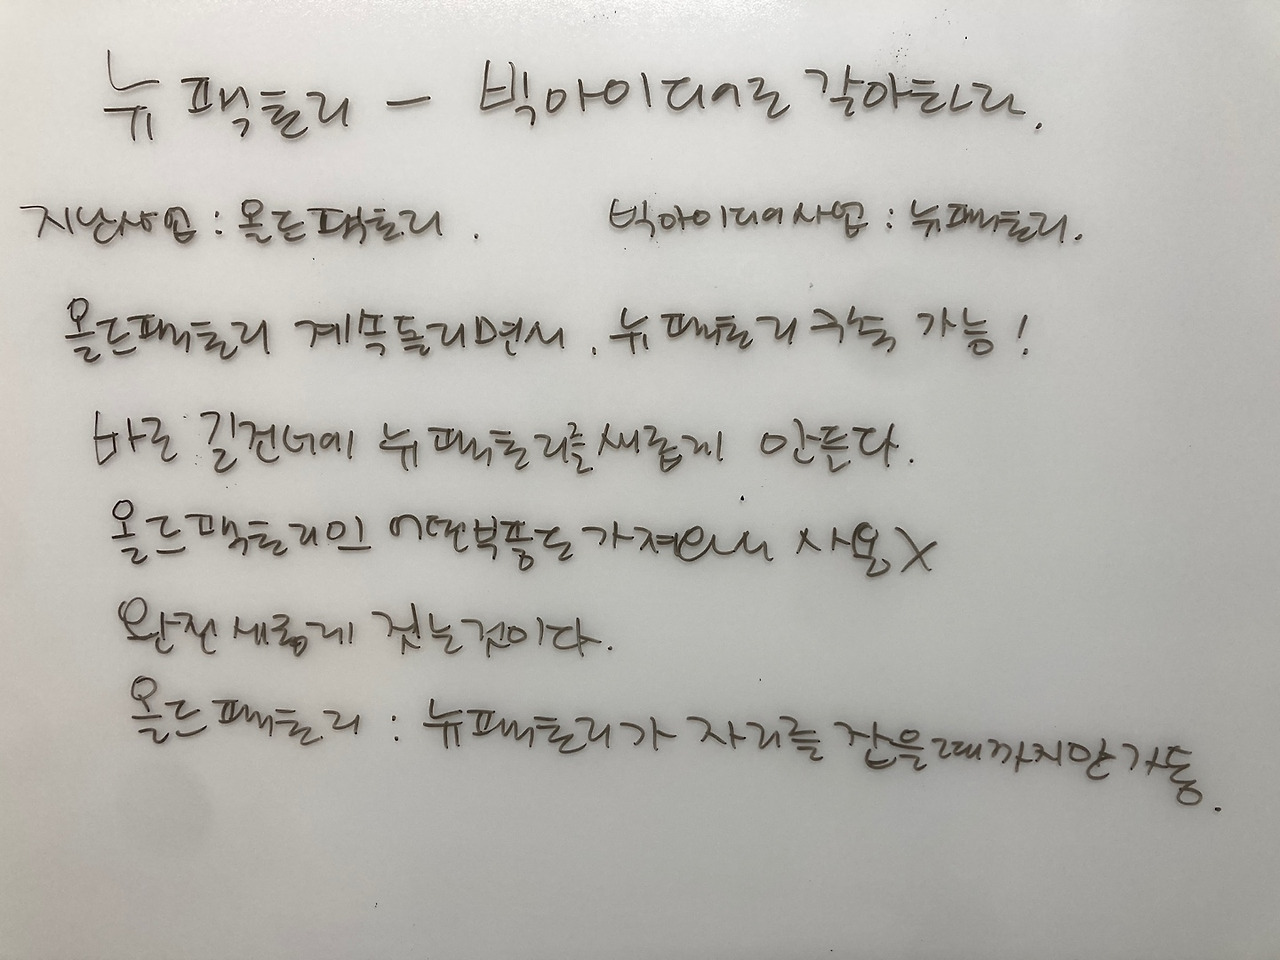 뉴팩토리 - 빅아이디어로 갈아타라.
지난사업 : 올드팩토리. 빅아이디어사업 : 뉴팩토리.
올드팩토리 계속돌리면서. 뉴팩토리 구축 가능!
바로 길건너에 뉴팩토리를 새롭게 만든다.
올드팩토리의 어떤부품도 가져와서 사용X
완전 새롭게 짓는것이다.
올드팩토리 : 뉴팩토리가 자리를 잡을때까지만 가동.